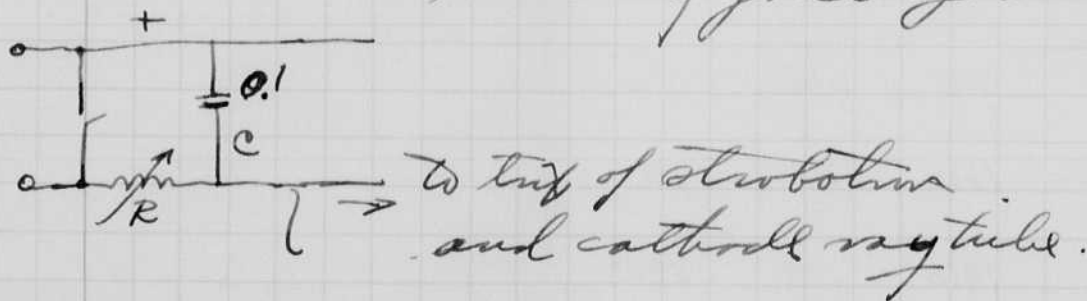 +
0.1
C
R
→ to trip of strobotron
and cathode ray tube.